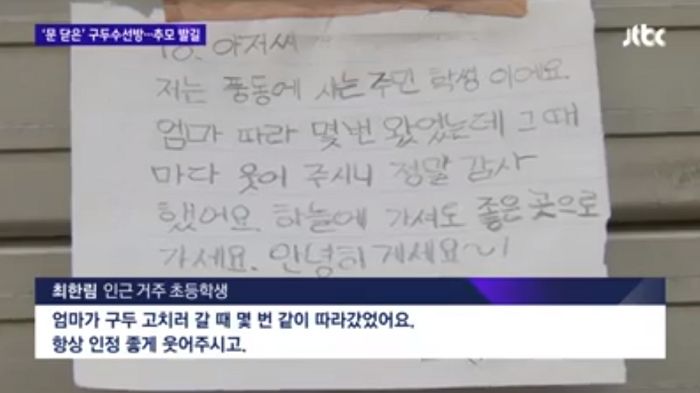 '문 닫은' 구두수선방…추모 발길
jtbc
To. 아저씨
저는 풍동에 사는 주민 학생 이에요.
엄마 따라 몇번 왔었는데 그 때
마다 웃어 주시니 정말 감사
했어요. 하늘에 가셔도 좋은 곳으로
가세요. 안녕히 계세요~!
최한림 인근 거주 초등학생
엄마가 구두 고치러 갈 때 몇 번 같이 따라갔었어요.
항상 인정 좋게 웃어주시고.